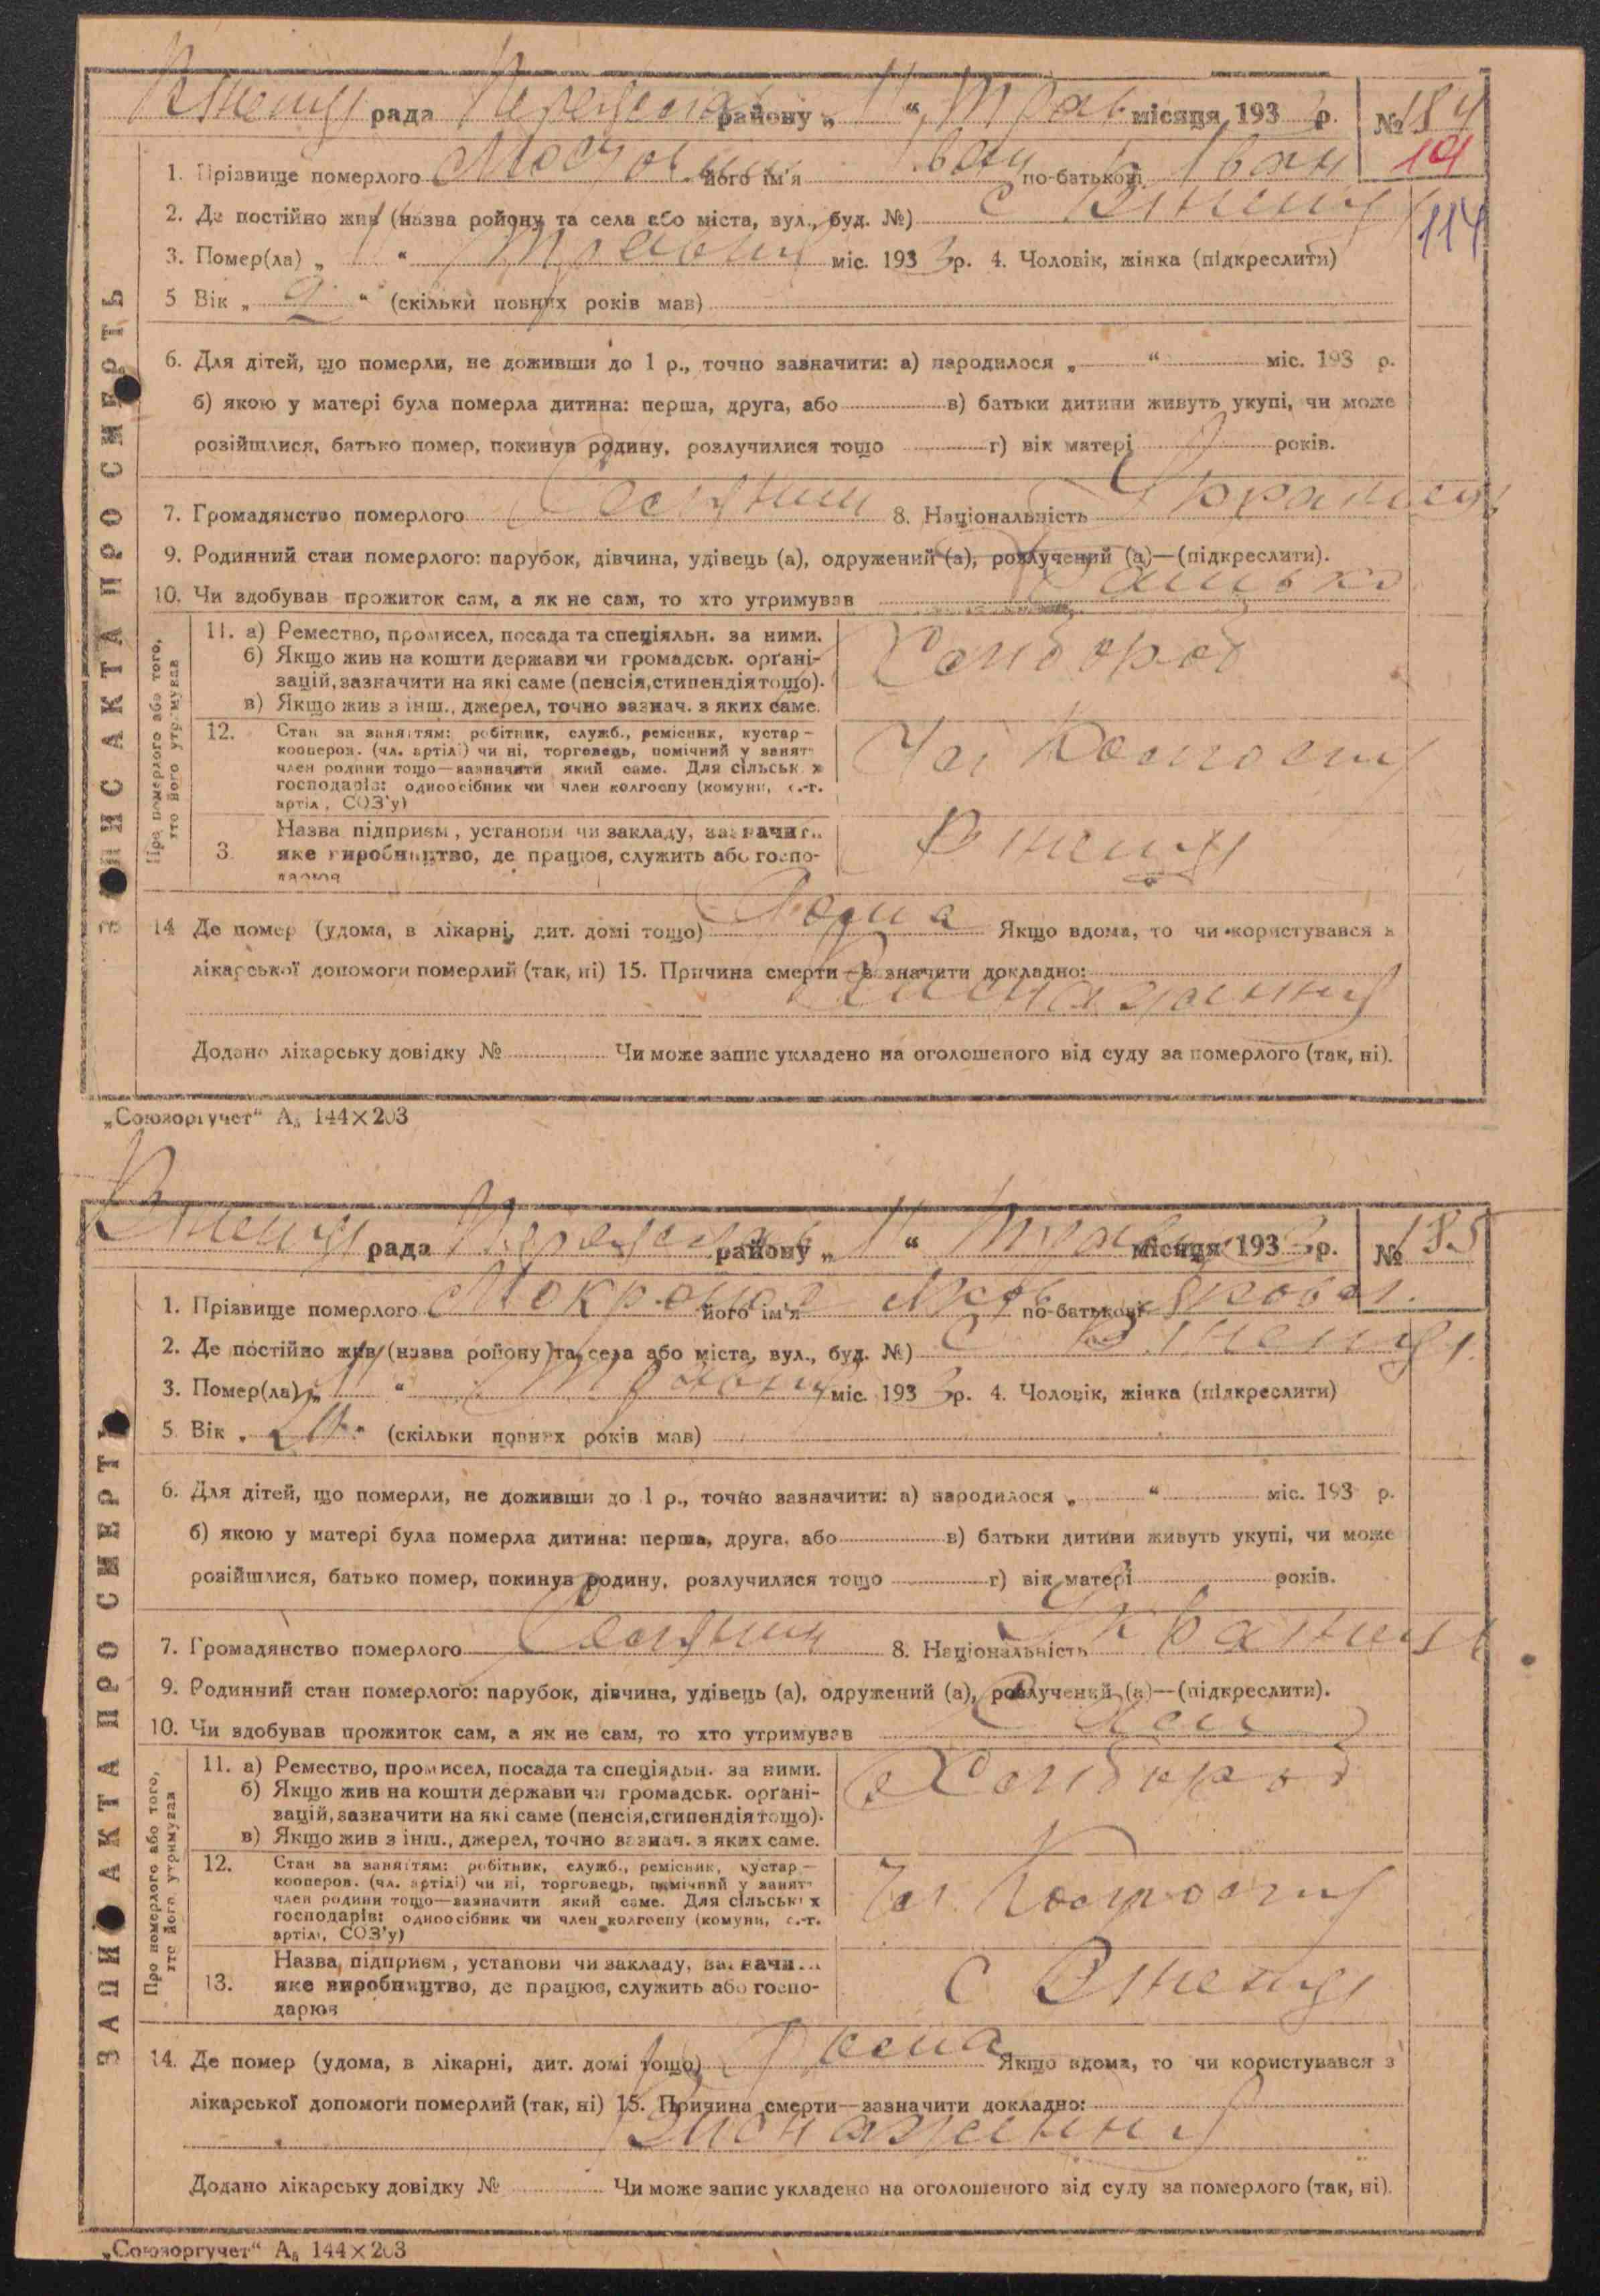 рада району „ 11 “ Трав місяця 1933 р. № 184
19
1. Прізвище померлого його ім'я Іван по-батькові Іван
114
2. Де постійно жив (назва ройону та села або міста, вул., буд. №) с
3. Помер(ла) „ 11 “ Травня міс. 1933 р. 4. Чоловік, жінка (підкреслити)
5 Вік „ “ (скільки повних років мав)
6. Для дітей, що померли, не доживши до 1 р., точно зазначити: а) народилося „ “ міс. 193 р.
б) якою у матері була померла дитина: перша, друга, або в) батьки дитини живуть укупі, чи може
розійшлися, батько помер, покинув родину, розлучилися тощо г) вік матері років.
7. Громадянство померлого 8. Національність
9. Родинний стан померлого: парубок, дівчина, удівець (а), одружений (а), розлучений (а)—(підкреслити).
10. Чи здобував прожиток сам, а як не сам, то хто утримував Батько
ЗАПИС АКТА ПРО СМЕРТЬ
Про померлого або того, хто його утримував
11. а) Ремество, промисел, посада та спеціяльн. за ними.
б) Якщо жив на кошти держави чи громадськ. орґані-
зацій, зазначити на які саме (пенсія, стипендія тощо).
в) Якщо жив з інш., джерел, точно зазнач. з яких саме.
Хлібороб
12. Стан за заняттям: робітник, служб., ремісник, кустар—
кооперов. (чл. артілі) чи ні, торговець, помічний у занятт
член родини тощо—зазначити який саме. Для сільських
господарів: одноосібник чи член колгоспу (комуни, с.-г.
артіл, СОЗ'у)
Чл Колгоспу
3. Назва підприєм, установи чи закладу, зазначити
яке виробництво, де працює, служить або госпо-
дарює
14 Де помер (удома, в лікарні, дит. домі тощо) Дома Якщо вдома, то чи користувався з
лікарської допомоги померлий (так, ні) 15. Причина смерти—зазначити докладно:
Виснаження
Додано лікарську довідку № Чи може запис укладено на оголошеного від суду за померлого (так, ні).
„Союзоргучет“ А₅ 144×203
рада району „ 11 “ Трав місяця 1933 р. № 185
1. Прізвище померлого його ім'я по-батькові
2. Де постійно жив (назва ройону та села або міста, вул., буд. №) с
3. Помер(ла) „ 11 “ Травня міс. 1933 р. 4. Чоловік, жінка (підкреслити)
5 Вік „ “ (скільки повних років мав)
6. Для дітей, що померли, не доживши до 1 р., точно зазначити: а) народилося „ “ міс. 193 р.
б) якою у матері була померла дитина: перша, друга, або в) батьки дитини живуть укупі, чи може
розійшлися, батько помер, покинув родину, розлучилися тощо г) вік матері років.
7. Громадянство померлого 8. Національність
9. Родинний стан померлого: парубок, дівчина, удівець (а), одружений (а), розлучений (а)—(підкреслити).
10. Чи здобував прожиток сам, а як не сам, то хто утримував
ЗАПИС АКТА ПРО СМЕРТЬ
Про померлого або того, хто його утримував
11. а) Ремество, промисел, посада та спеціяльн. за ними.
б) Якщо жив на кошти держави чи громадськ. орґані-
зацій, зазначити на які саме (пенсія, стипендія тощо).
в) Якщо жив з інш., джерел, точно зазнач. з яких саме.
Хлібороб
12. Стан за заняттям: робітник, служб., ремісник, кустар—
кооперов. (чл. артілі) чи ні, торговець, помічний у занятт
член родини тощо—зазначити який саме. Для сільських
господарів: одноосібник чи член колгоспу (комуни, с.-г.
артілі, СОЗ'у)
Чл. Колгоспу
13. Назва підприєм, установи чи закладу, зазначи
яке виробництво, де працює, служить або госпо-
дарює
с
14. Де помер (удома, в лікарні, дит. домі тощо) Якщо вдома, то чи користувався з
лікарської допомоги померлий (так, ні) 15. Причина смерти—зазначити докладно:
Виснаження
Додано лікарську довідку № Чи може запис укладено на оголошеного від суду за померлого (так, ні).
„Союзоргучет“ А₅ 144×203